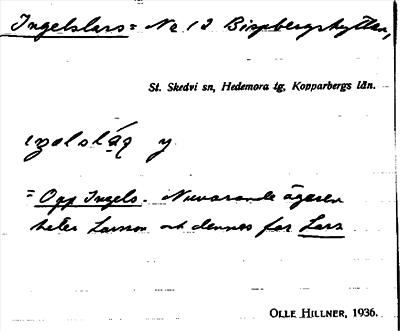 Ingelslars = No 12 Bispbergshyttan,
St. Skedvi sn, Hedemora tg, Kopparbergs län.
y
= Opp Ingels. Nuvarande ägaren
heter Larsson och dennes far Lars
OLLE HILLNER, 1936.